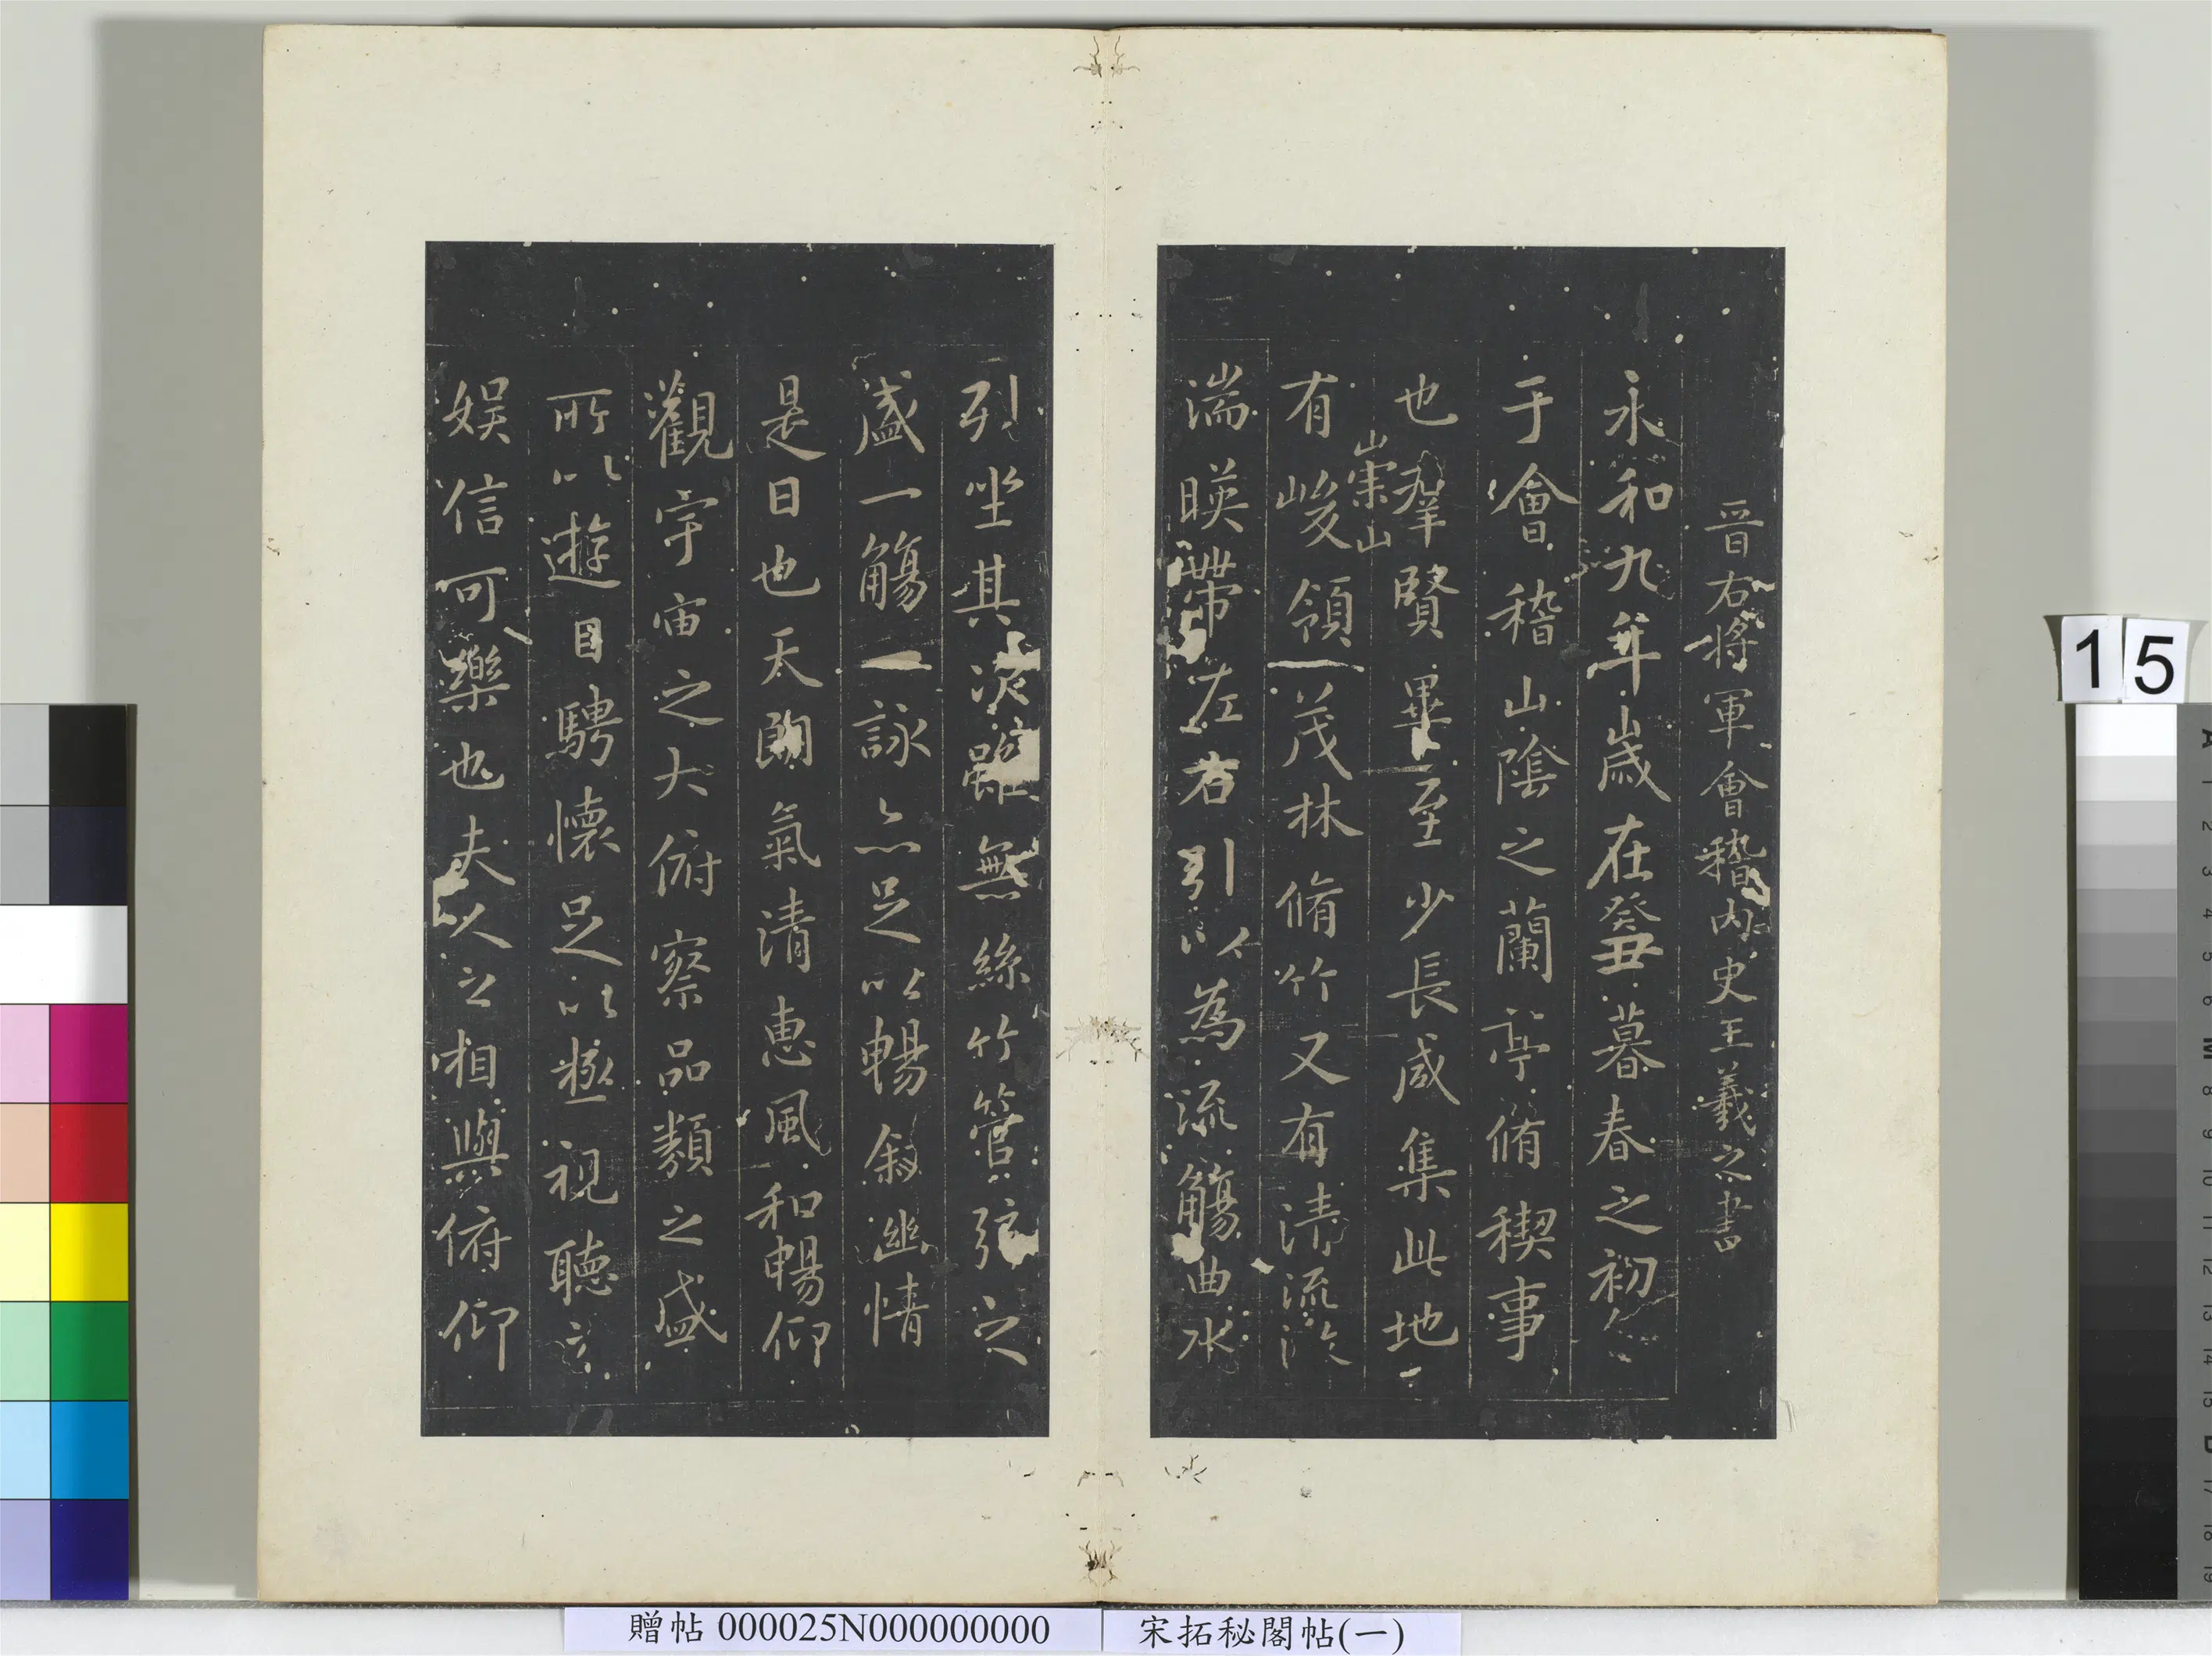 晉右將軍會稽內史王羲之書
永和九年歲在癸丑暮春之初會
于會稽山陰之蘭亭脩稧事
也羣賢畢至少長咸集此地
崇山
有峻領茂林脩竹又有清流激
湍暎帶左右引以為流觴曲水
列坐其次雖無絲竹管弦之
盛一觴一詠亦足以暢敘幽情
是日也天朗氣清惠風和暢仰
觀宇宙之大俯察品類之盛
所以遊目騁懷足以極視聽之
娛信可樂也夫人之相與俯仰
15
贈帖 000025N000000000
宋拓秘閣帖(一)